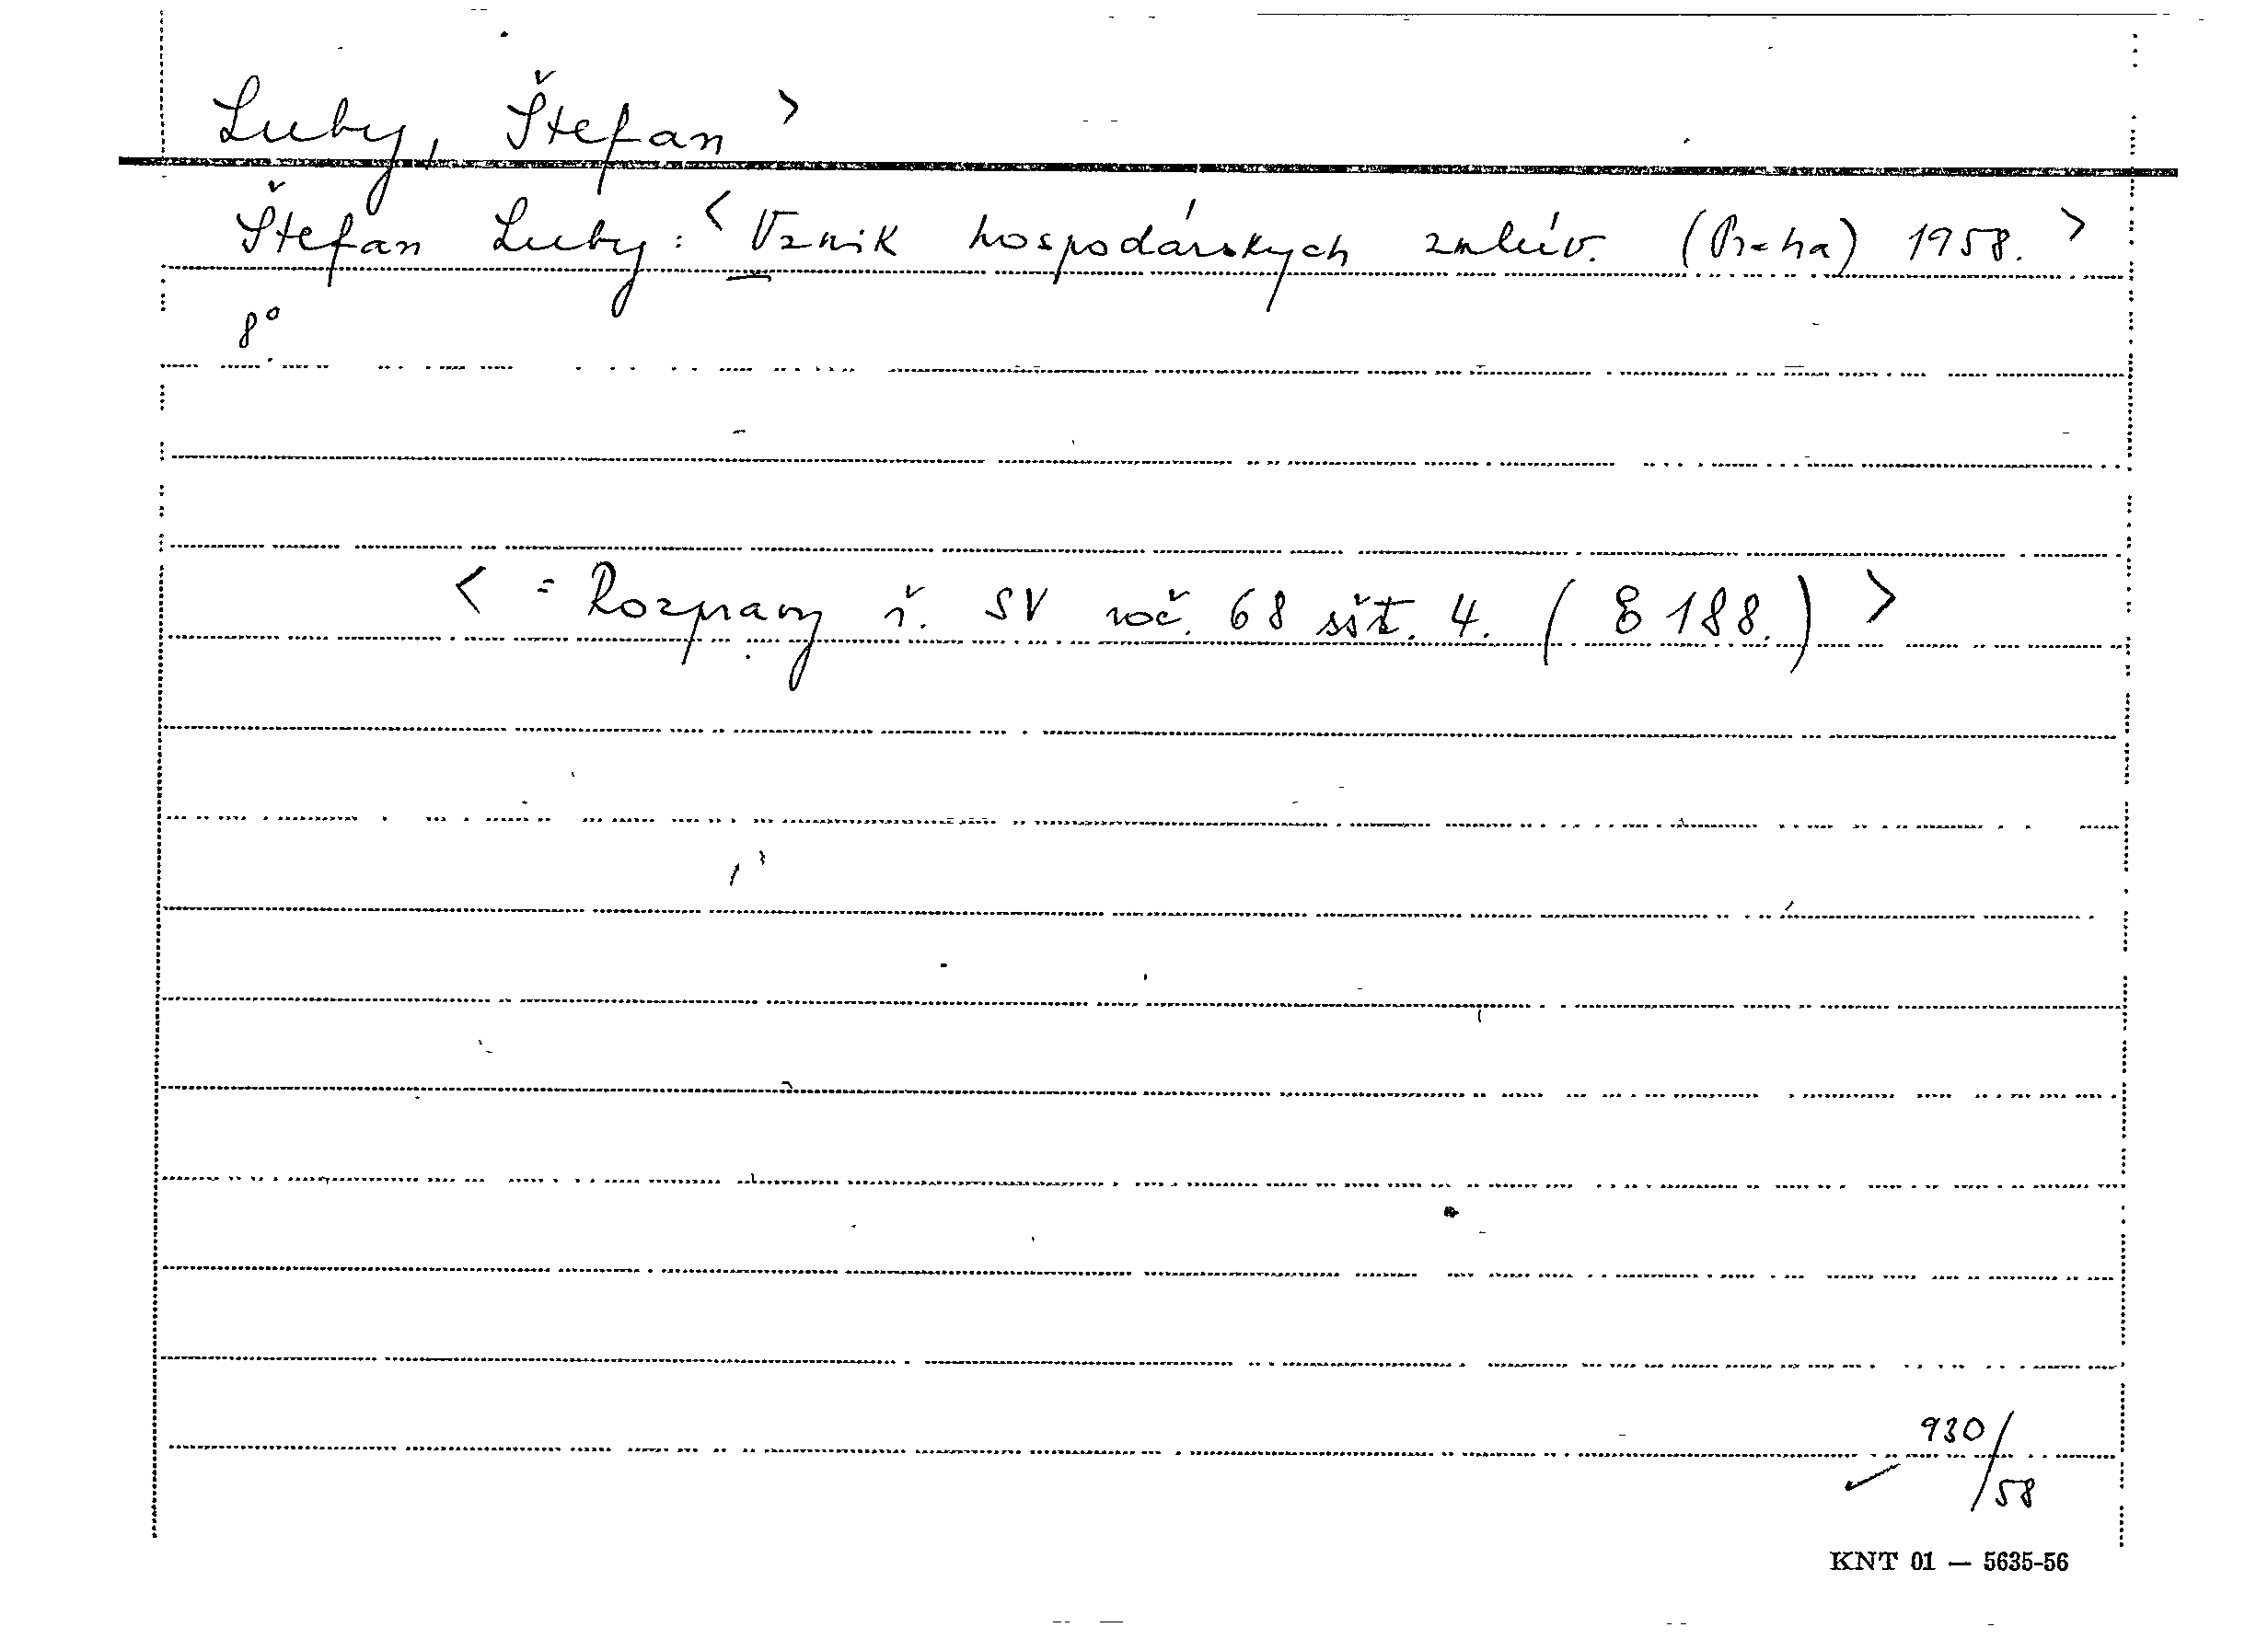 Luby, Štefan >
Štefan Luby: < Vznik hospodárskych zmlúv. (Praha) 1958. >
8°.
< = Rozpravy ř. SV roč. 68 sšt. 4. ( E 188.) >
930/58
KNT 01 — 5635-56